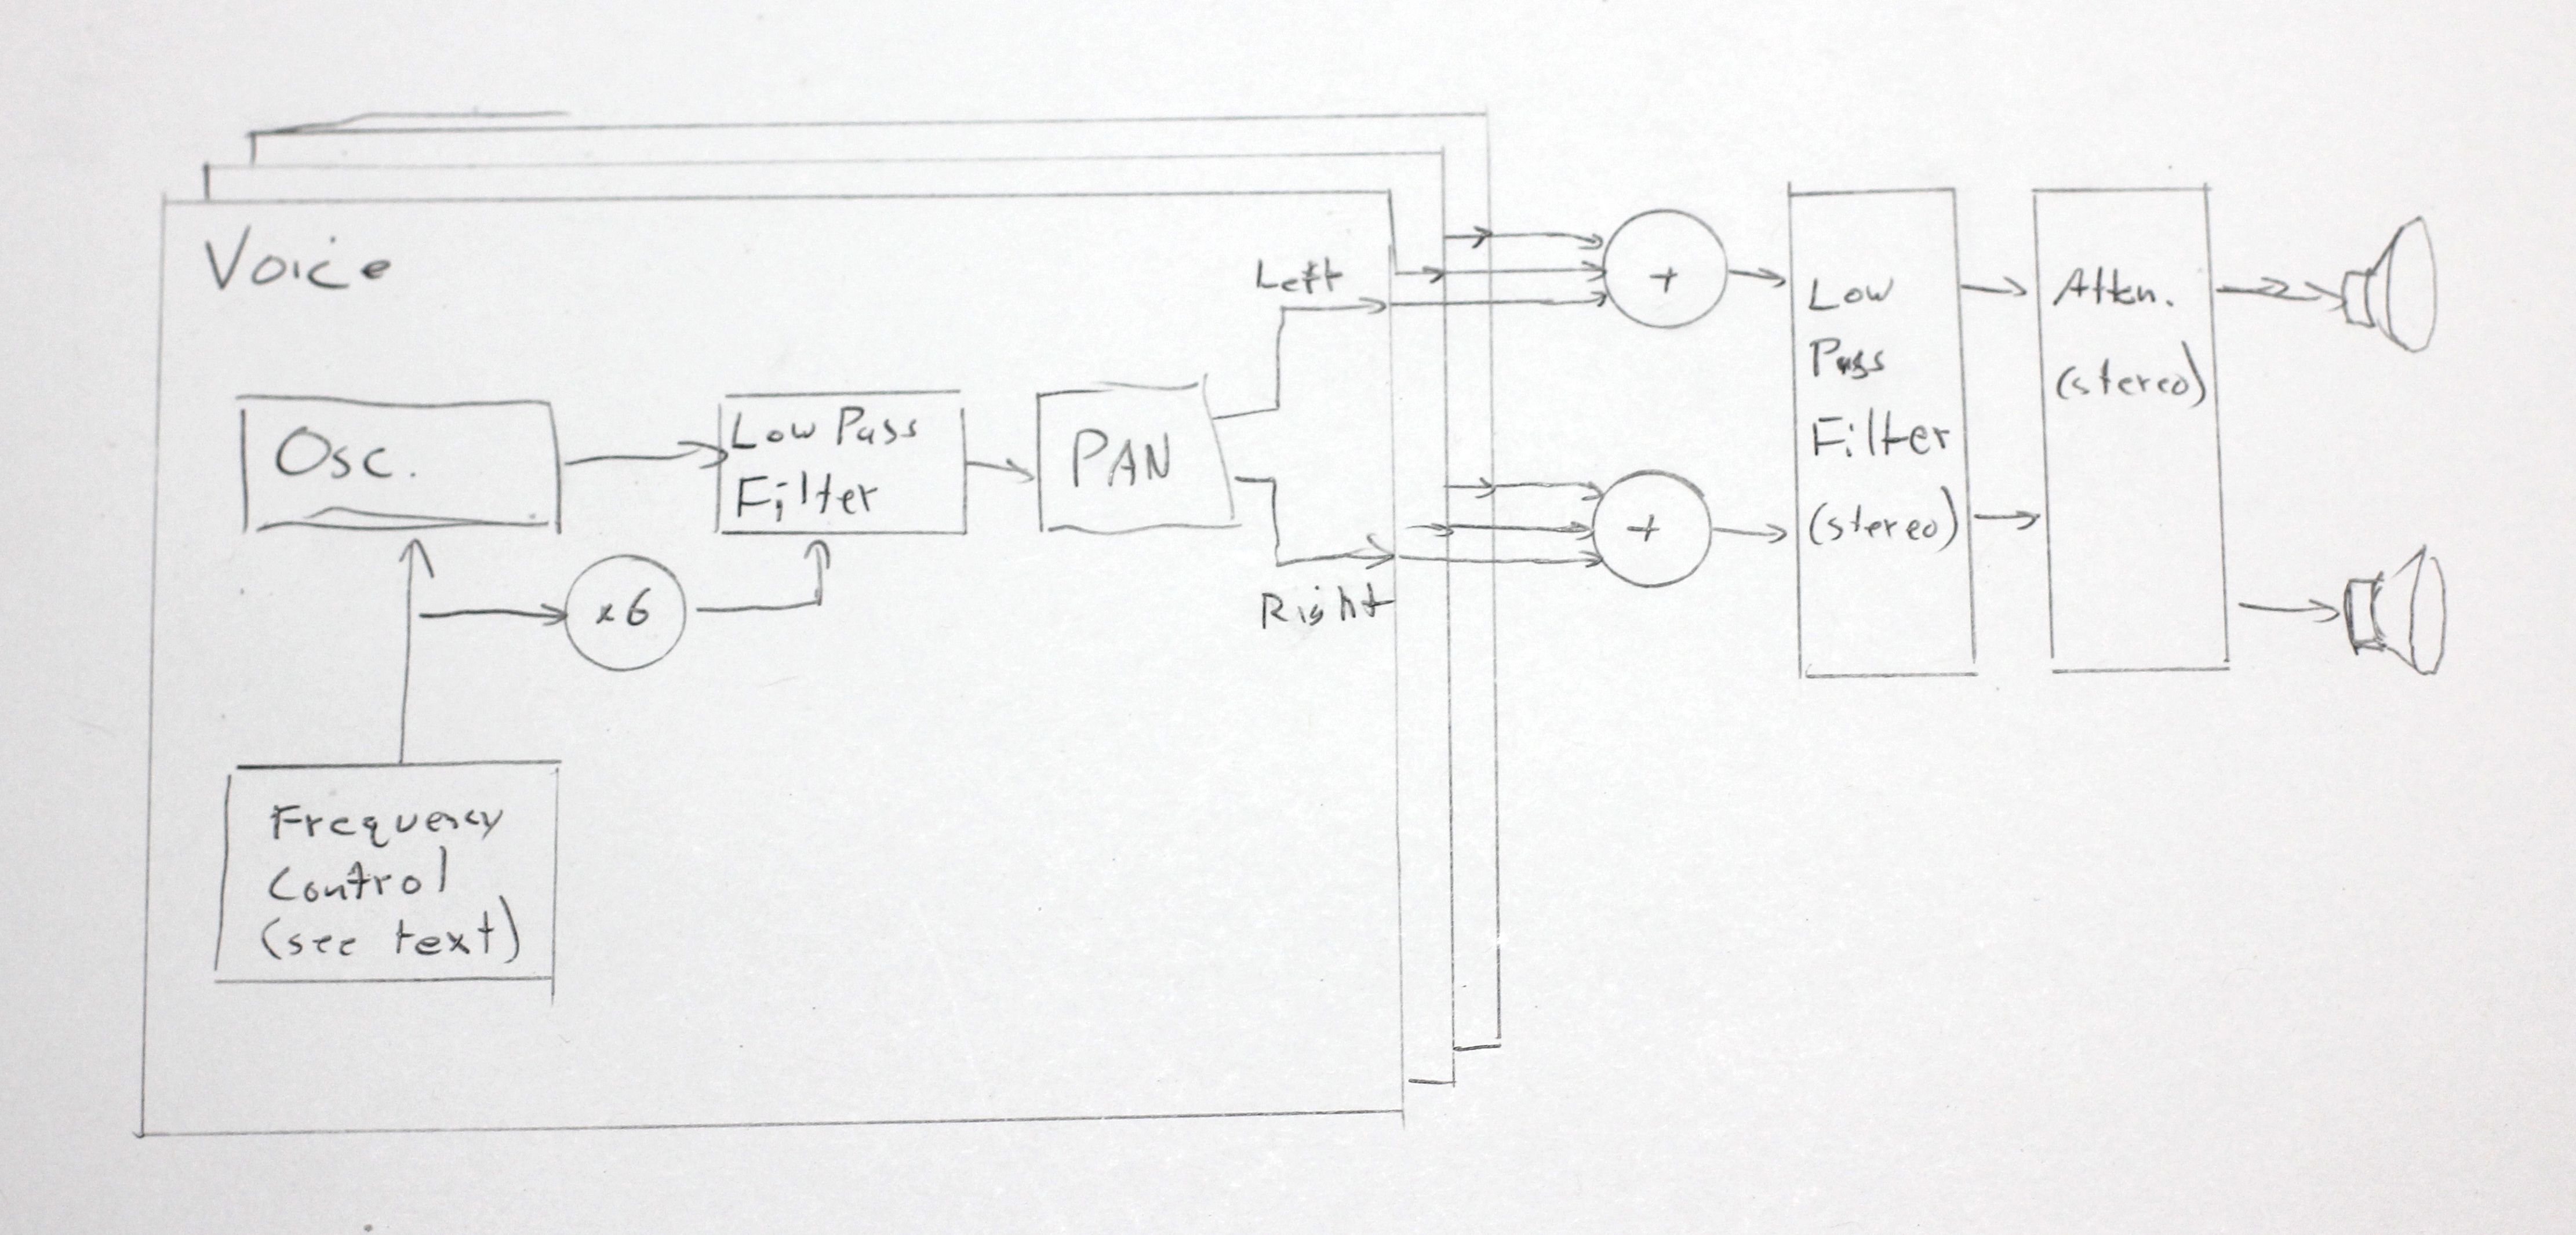 Voice
Left
Osc.
Low Pass
Filter
PAN
x6
Right
Frequency
Control
(see text)
+
+
Low
Pass
Filter
(stereo)
Atten.
(stereo)